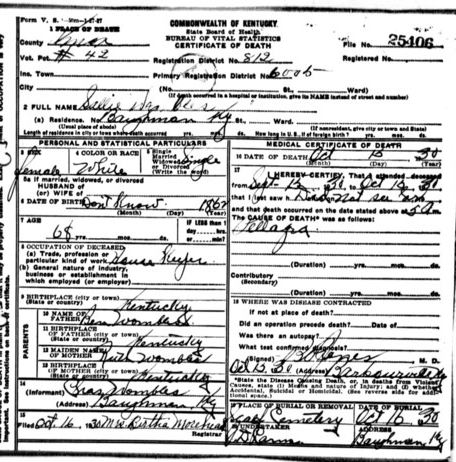 Form V. S.
COMMONWEALTH OF KENTUCKY
State Board of Health
BUREAU OF VITAL STATISTICS
CERTIFICATE OF DEATH
1 PLACE OF DEATH
County Knox
File No. 25406
Vot. Pct. # 42
Registration District No. 812
Registered No.
Ins. Town
Primary Registration District No. 6005
City
(No. St., Ward)
(If death occurred in a hospital or institution, give its NAME instead of street and number)
2 FULL NAME
(a) Residence. No. Baughman Ky St., Ward.
(Usual place of abode)
(If nonresident, give city or town and State)
Length of residence in city or town where death occurred yrs. mos. ds.
How long in U. S., if of foreign birth? yrs. mos. ds.
PERSONAL AND STATISTICAL PARTICULARS
3 SEX
female
4 COLOR OR RACE
White
5 Single
Married
Widowed
or Divorced
(Write the word)
Single
5a If married, widowed, or divorced
HUSBAND of
(or) WIFE of
6 DATE OF BIRTH Dont Know 1862
(Month) (Day) (Year)
7 AGE
68 yrs. mos. ds.
IF LESS than
1 day hrs.
or min.?
8 OCCUPATION OF DECEASED
(a) Trade, profession, or
particular kind of work House Keeper
(b) General nature of industry,
business or establishment in
which employed (or employer)
9 BIRTHPLACE (city or town)
(State or country) Kentucky
PARENTS
10 NAME OF
FATHER
11 BIRTHPLACE
OF FATHER (city or town)
(State or country) Kentucky
12 MAIDEN NAME
OF MOTHER
13 BIRTHPLACE
OF MOTHER (city or town)
(State or country) Kentucky
14
(Informant)
(Address) Baughman Ky
15
Filed Oct 16, 1930 Mrs Birtha Morehead
Registrar
MEDICAL CERTIFICATE OF DEATH
16 DATE OF DEATH Oct 15 30
(Month) (Day) (Year)
17
I HEREBY CERTIFY, That I attended deceased
from Sept 15, 30, to Oct 15, 30
that I last saw h Did not see on
and that death occurred on the date stated above at 5 a m.
The CAUSE OF DEATH* was as follows:
Pellagra
(Duration) yrs. mos. ds.
Contributory
(Secondary)
(Duration) yrs. mos. ds.
18 WHERE WAS DISEASE CONTRACTED
if not at place of death?
Did an operation precede death? Date of
Was there an autopsy?
What test confirmed diagnosis?
(Signed) M. D.
Oct 15, 30 (Address) Barbourville Ky
*State the Disease Causing Death, or, in deaths from Violent
Causes, state (1) Means and Nature of Injury; and (2) whether
Accidental, Suicidal or Homicidal. (See reverse side for additional
space.)
19 PLACE OF BURIAL OR REMOVAL
Cemetery
DATE OF BURIAL
Oct 16 30
20 UNDERTAKER
ADDRESS
Baughman Ky